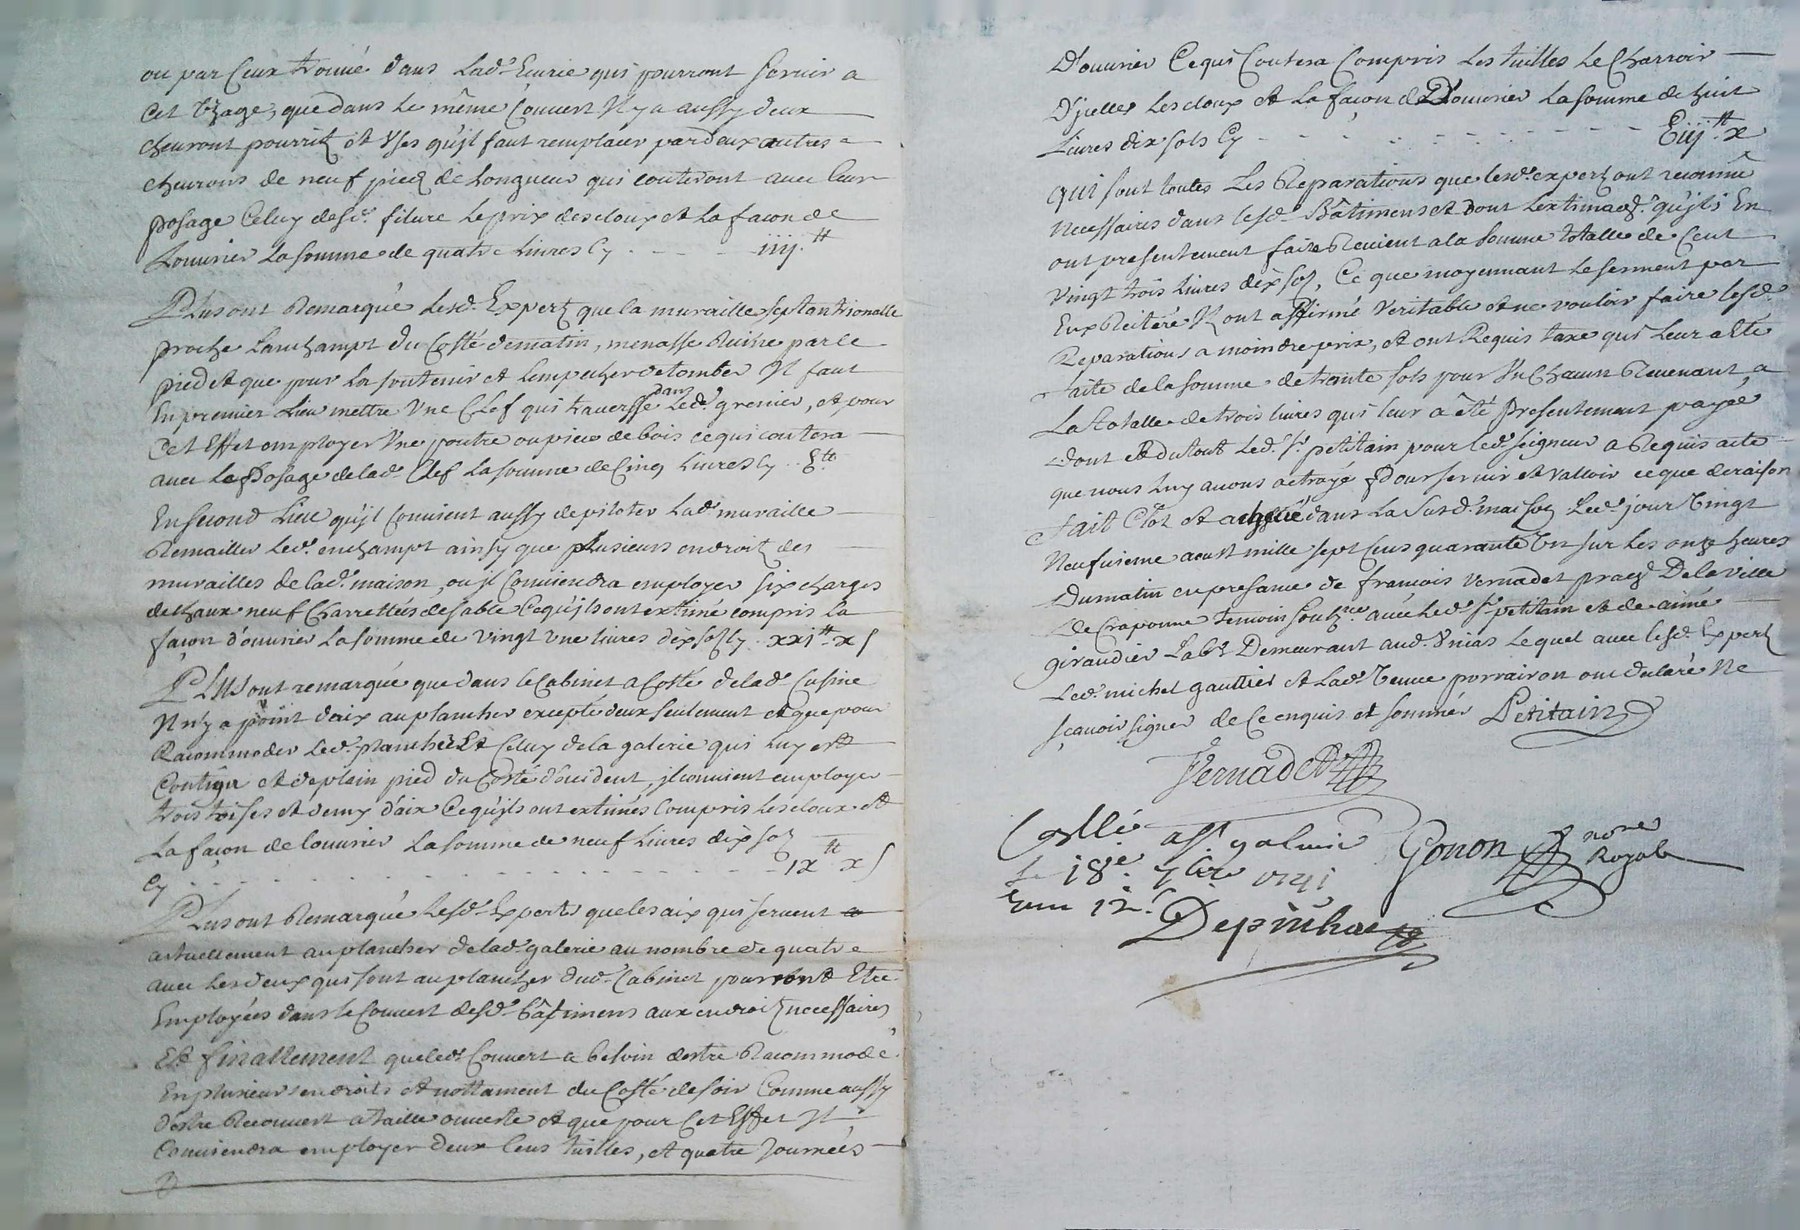 ou par Ceux trouvé dans Lad.e Ecurie qui pourront servir a
Cet Uzage, que dans Le même Couvert Il y a aussy deux
chevront pourritz et Uses qu'jl faut remplacer par deux autres
chevrons de neuf piedz de Longueur qui Couteront avec leur
posage Celuy desd. filure Le prix des cloux et La facon de
Louvrier La somme de quatre Livres Cy - - - iiij.tt
Plus ont Remarqué Lesd. Expertz que la muraille septantrionalle
proche Lanchampt du Costé de matin, menasse Ruine par le
pied et que pour La soutenir et Lempecher de tomber Il faut
En premier Lieu mettre Une Clef qui traversse dans Led. grenier, et pour
Cet Effet employer Une poutre ou piece de bois ce qui coutera
avec Le Posage de lad. Clef La somme de Cinq Livres Cy 5tt
En second Lieu qu'jl Convient aussy de piloter Lad. muraille
Remailler Led. enchampt ainsy que plusieurs endroitz des
murailles de lad. maison, ou jl Conviendra employer six charges
de chaux neuf Charrettés de sable Ce qu'jls ont extimé compris la
façon d'ouvrier La somme de Vingt Une livres dix sols Cy xxitt x s
Plus ont remarqué que dans le Cabinet a Costé de lad. Cuisine
Il n'y a point d'aix au plancher excepté deux seulement et que pour
Racommoder Led. plancher Et Celuy de la galerie qui Luy est
Contigu et de plain pied du Costé d'occident, jl convient employer
trois toises et demy d'aix Ce qu'jls ont extimés Compris Les cloux et
La façon de Louvrier La somme de neuf Livres dix soz
Cy - - - ixtt x s
Plus ont Remarqué Lesd. Experts que les aix qui servent
actuellement au plancher de lad. galerie au nombre de quatre
avec Les deux qui sont au plancher dud. Cabinet pourront Etre
Employées dans le Couvert desd. bâtimens aux endroitz necessaires,
Et finallement que led. Couvert a besoin d'estre Racommodé
En plusieurs endroits et nottament du Costé de soir Comme aussy
d'estre Recouvert a taille ouverte et que pour Cet Effet Il
Conviendra employer deux Cens tuilles, et quatre Journées
D'ouvrier Ce qui Coutera Compris Les tuilles Le Charroir
D'jcelles Les cloux et La façon de D'ouvrier La somme de huit
Livres dix sols Cy - - - Eiij.tt x
qui sont toutes Les Reparations que lesd. expertz ont reconnu
Necessaires dans lesd. Bâtimens et dont Lextimaõn qu'jls En
ont presentement faite Revient a la somme totalle de Cent
Vingt trois livres dix soz, Ce que moyennant Le serment par
Eux Reiteré Ils ont affirmé Veritable et ne vouloir faire lesd.
Reparations a moindre prix, et ont Requis taxe qui Leur a Eté
faite de la somme de trente sols pour Un Chacun Revenant a
La totalle de trois livres qui leur a été presentement payée
dont et du tout Led. Sr. petitain pour led. seigneur a Requis acte
que nous Luy avons octroyé Pour servir et valloir ce que de raison
fait Clos et achevé dans La Susd. maison Led. jour Vingt
Neufvieme aoust mille sept Cens quarante Un sur Les onze heures
Du matin en presance de francois Vernadet De la Ville
de Craponne temoin avec Led. Sr. petitain et de aimé
giraudier Lab.r Demeurant aud. Unias Lequel avec lesd. Expertz
Led. michel gauttier et Lad. Veuve porrairon ont declaré Ne
sçavoir signer de Ce enquis et sommér Petitain
Vernadet
Collé a St. galmier Gonon nore
Le 18e. 7bre 1741 Royal
Reçu 12s.
Depinhac